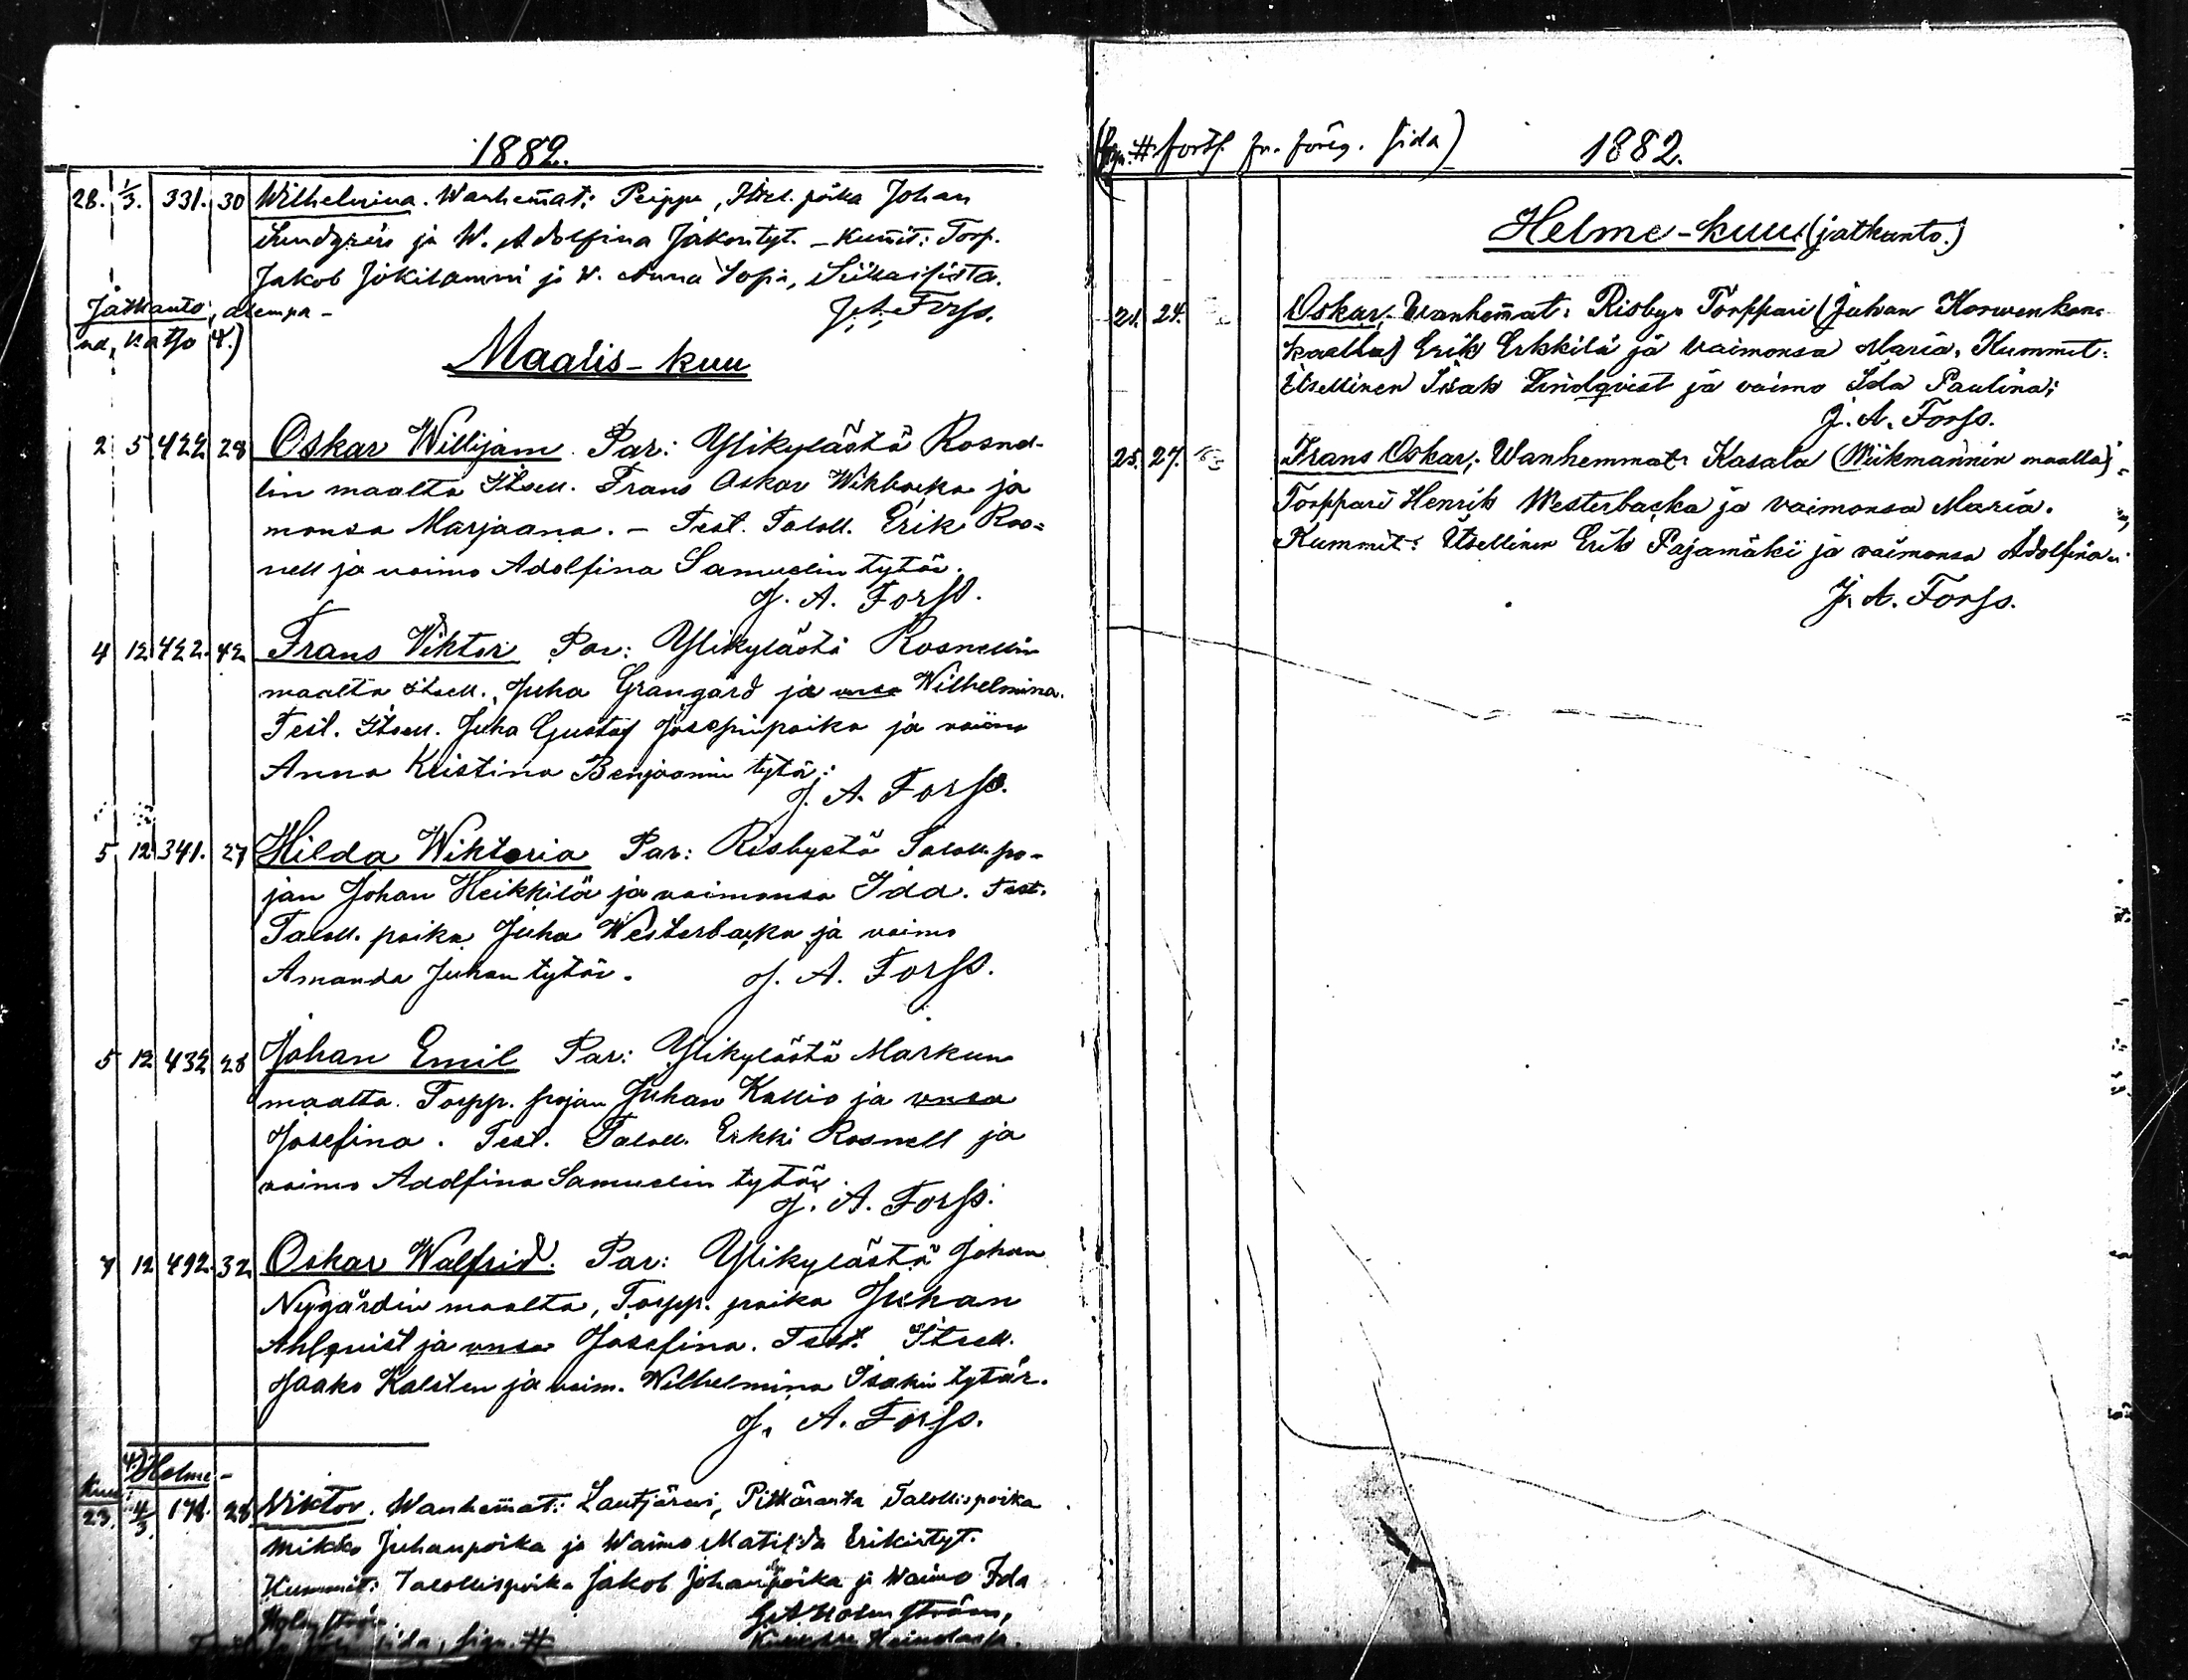 1882.
28. 1/3. 331. 30 Wilhelmina. Wanhemat: Peippu, Itsel. poika Johan
Lundgrén ja W. Adolfina Jakontyt. – Kumit: Torp.
Jakob Jokilammi ja W. Anna Sofia, Siikaisista.
Jatkanto, alempa- J. A. Forss.
na, katso 4.)
Maalis-kuu
2 5 422 28 Oskar Willijam. Par: Ylikylästä Rosnel-
lin maalta Itsell. Frans Oskar Wikbacka ja
monsa Marjaana. – Test. Taloll. Erik Ros=
nell ja vaimo Adolfina Samuelin tytär.
J. A. Forss.
4 12 422. 42 Frans Viktor Par: Ylikylästä Rosnellin
maalta itsell. Juha Grangård ja vnsa Wilhelmina.
Test. Itsell. Juha Gustaf Josepinpoika ja vaimo
Anna Kristina Benjaamin tytär:
J. A. Forss.
5 12 341. 27 Hilda Wiktoria Par: Risbystä Taloll. po-
jan Johan Heikkilä ja vaimonsa Ida. Test.
Taloll. poika Juha Westerbacka ja vaimo
Amanda Juhan tytär. J. A. Forss.
5 12 432 28 Johan Emil Par: Ylikylästä Markun
maalta. Torpp. pojan Juhan Kallio ja vnsa
Josefina. Test. Taloll. Erkki Rosnell ja
vaimo Adolfina Samuelin tytär.
J. A. Forss.
7 12 492. 32 Oskar Walfrid. Par: Ylikylästä Johan
Nygårdin maalta, Torpp. poika Juhan
Ahlqvist ja vnsa Josefina. Test. Itsell.
Jaako Kalsten ja vaim. Wilhelmina Isakin tytär.
J. A. Forss.
4.) Helme-
kuu:
23. 4/3. 178. 28 Viktor. Wanhemat: Lautjärwi, Pitkäranta Talollispoika
Mikko Juhanpoika ja Waimo Matilda Erikintyt.
Kummit: Talollispoika Jakob Johanpoika ja Waimo Ida
Holmström. G. A. Holmström,
sida, sign. #
(Sign. # forts. fr. föreg. sida) 1882.
Helme-kuu (jatkanto.)
21. 24. Oskar; Wanhemat: Risbyn Torppari (Juhan Korwenkan-
kaalla) Erik Erkkilä ja vaimonsa Maria. Kummit:
Itsellinen Isak Lindqvist ja vaimo Ida Paulina;
J. A. Forss.
25. 27. Frans Oskar; Wanhemmat: Kasala (Wiikmannin maalla)
Torppari Henrik Westerbacka ja vaimonsa Maria.
Kummit: Itsellinen Erik Pajamäki ja vaimonsa Adolfina
J. A. Forss.